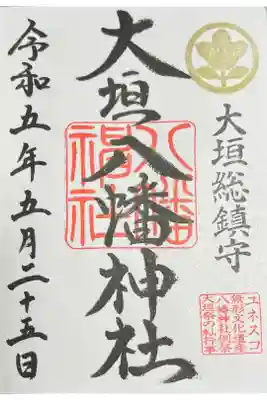 大垣総鎮守
大垣八幡神社
令和五年五月二十五日
八幡
神社
ユネスコ
無形文化遺産
八幡神社例祭
大垣祭の𨋳行事